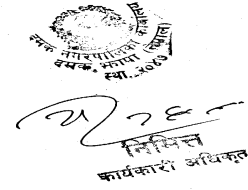 दमक नगरपालिका कार्यालय
दमक, झापा (नेपाल)
स्था. २०४७
निमित्त
कार्यकारी अधिकृत